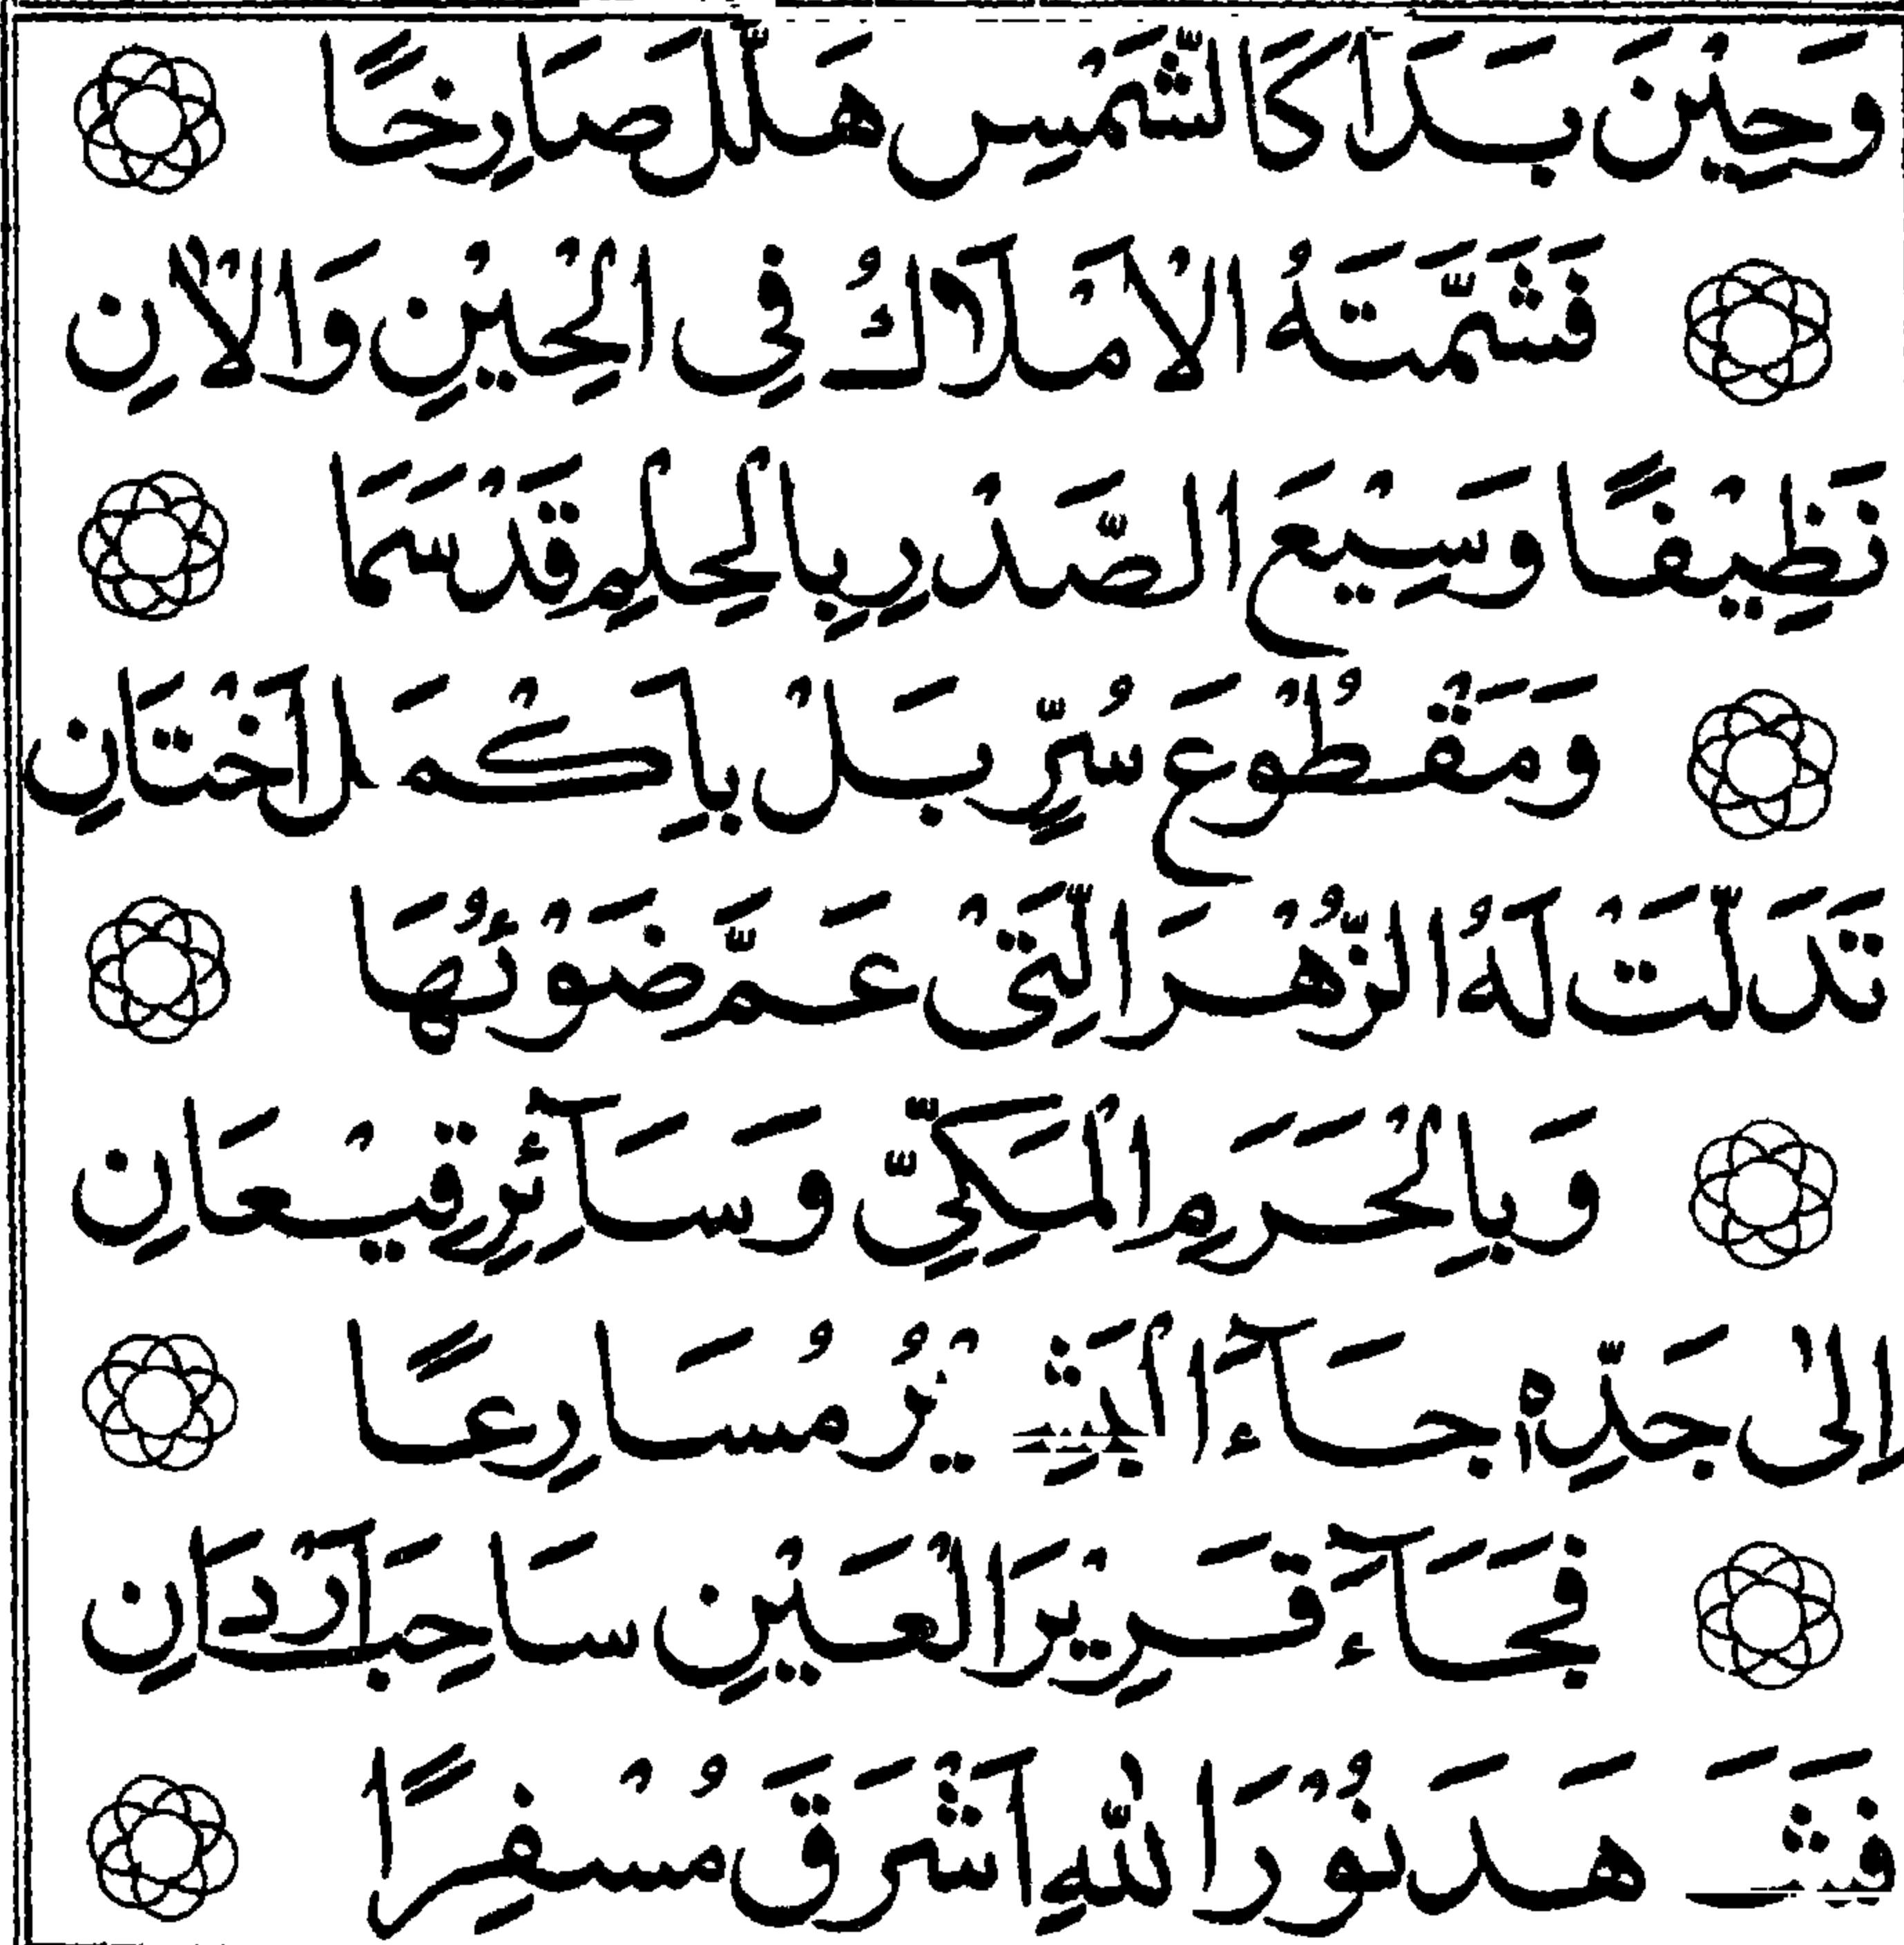 وَحِيْنَ بَدَا كَالشَّمْسِ هَلَّلَ صَارِخًا
فَشَمَّتَهُ الْاَمْلَاكُ فِى الْحِيْنِ وَالْاٰنِ
نَظِيْفًا وَسِيْعَ الصَّدْرِ بِالْحِلْمِ قَدْ سَمَا
وَمَقْطُوْعَ سُرٍّ بَلْ بِاَكْمَلِ اَخْتَانِ
تَدَلَّتْ لَهُ الزُّهْرَ الَّتِىْ عَمَّ ضَوْئُهَا
وَبِالْحَرَمِ الْمَكِّىِّ وَسَآئِرِ قِيْعَانِ
اِلىٰ جَدِّهٖ جَآءَ الْبَشِيْرُ مُسَارِعًا
فَجَآءَ قَرِيْرَ الْعَيْنِ سَاحِبَ اَرْدَانِ
فَشَاهَدَ نُوْرَ اللّٰهِ اَشْرَقَ مُسْفِرًا